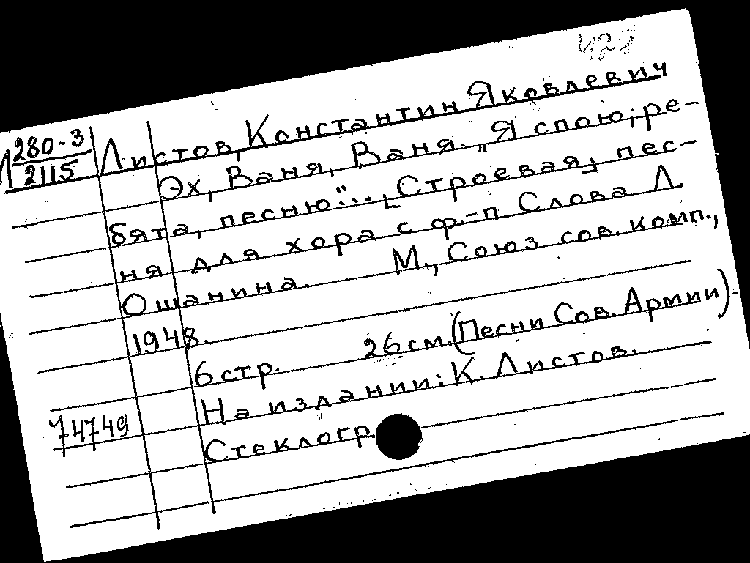 280-3
2115
Листов, Константин Яковлевич
Эх, Ваня, Ваня. "Я спою, ре-
бята, песню"... [Строевая] пес-
ня для хора с ф.-п Слова Л.
Ошанина. М., Союз сов. комп.,
1948.
6 стр. 26 см. (Песни Сов. Армии).
На издании: К. Листов.
Стеклогр.
74749